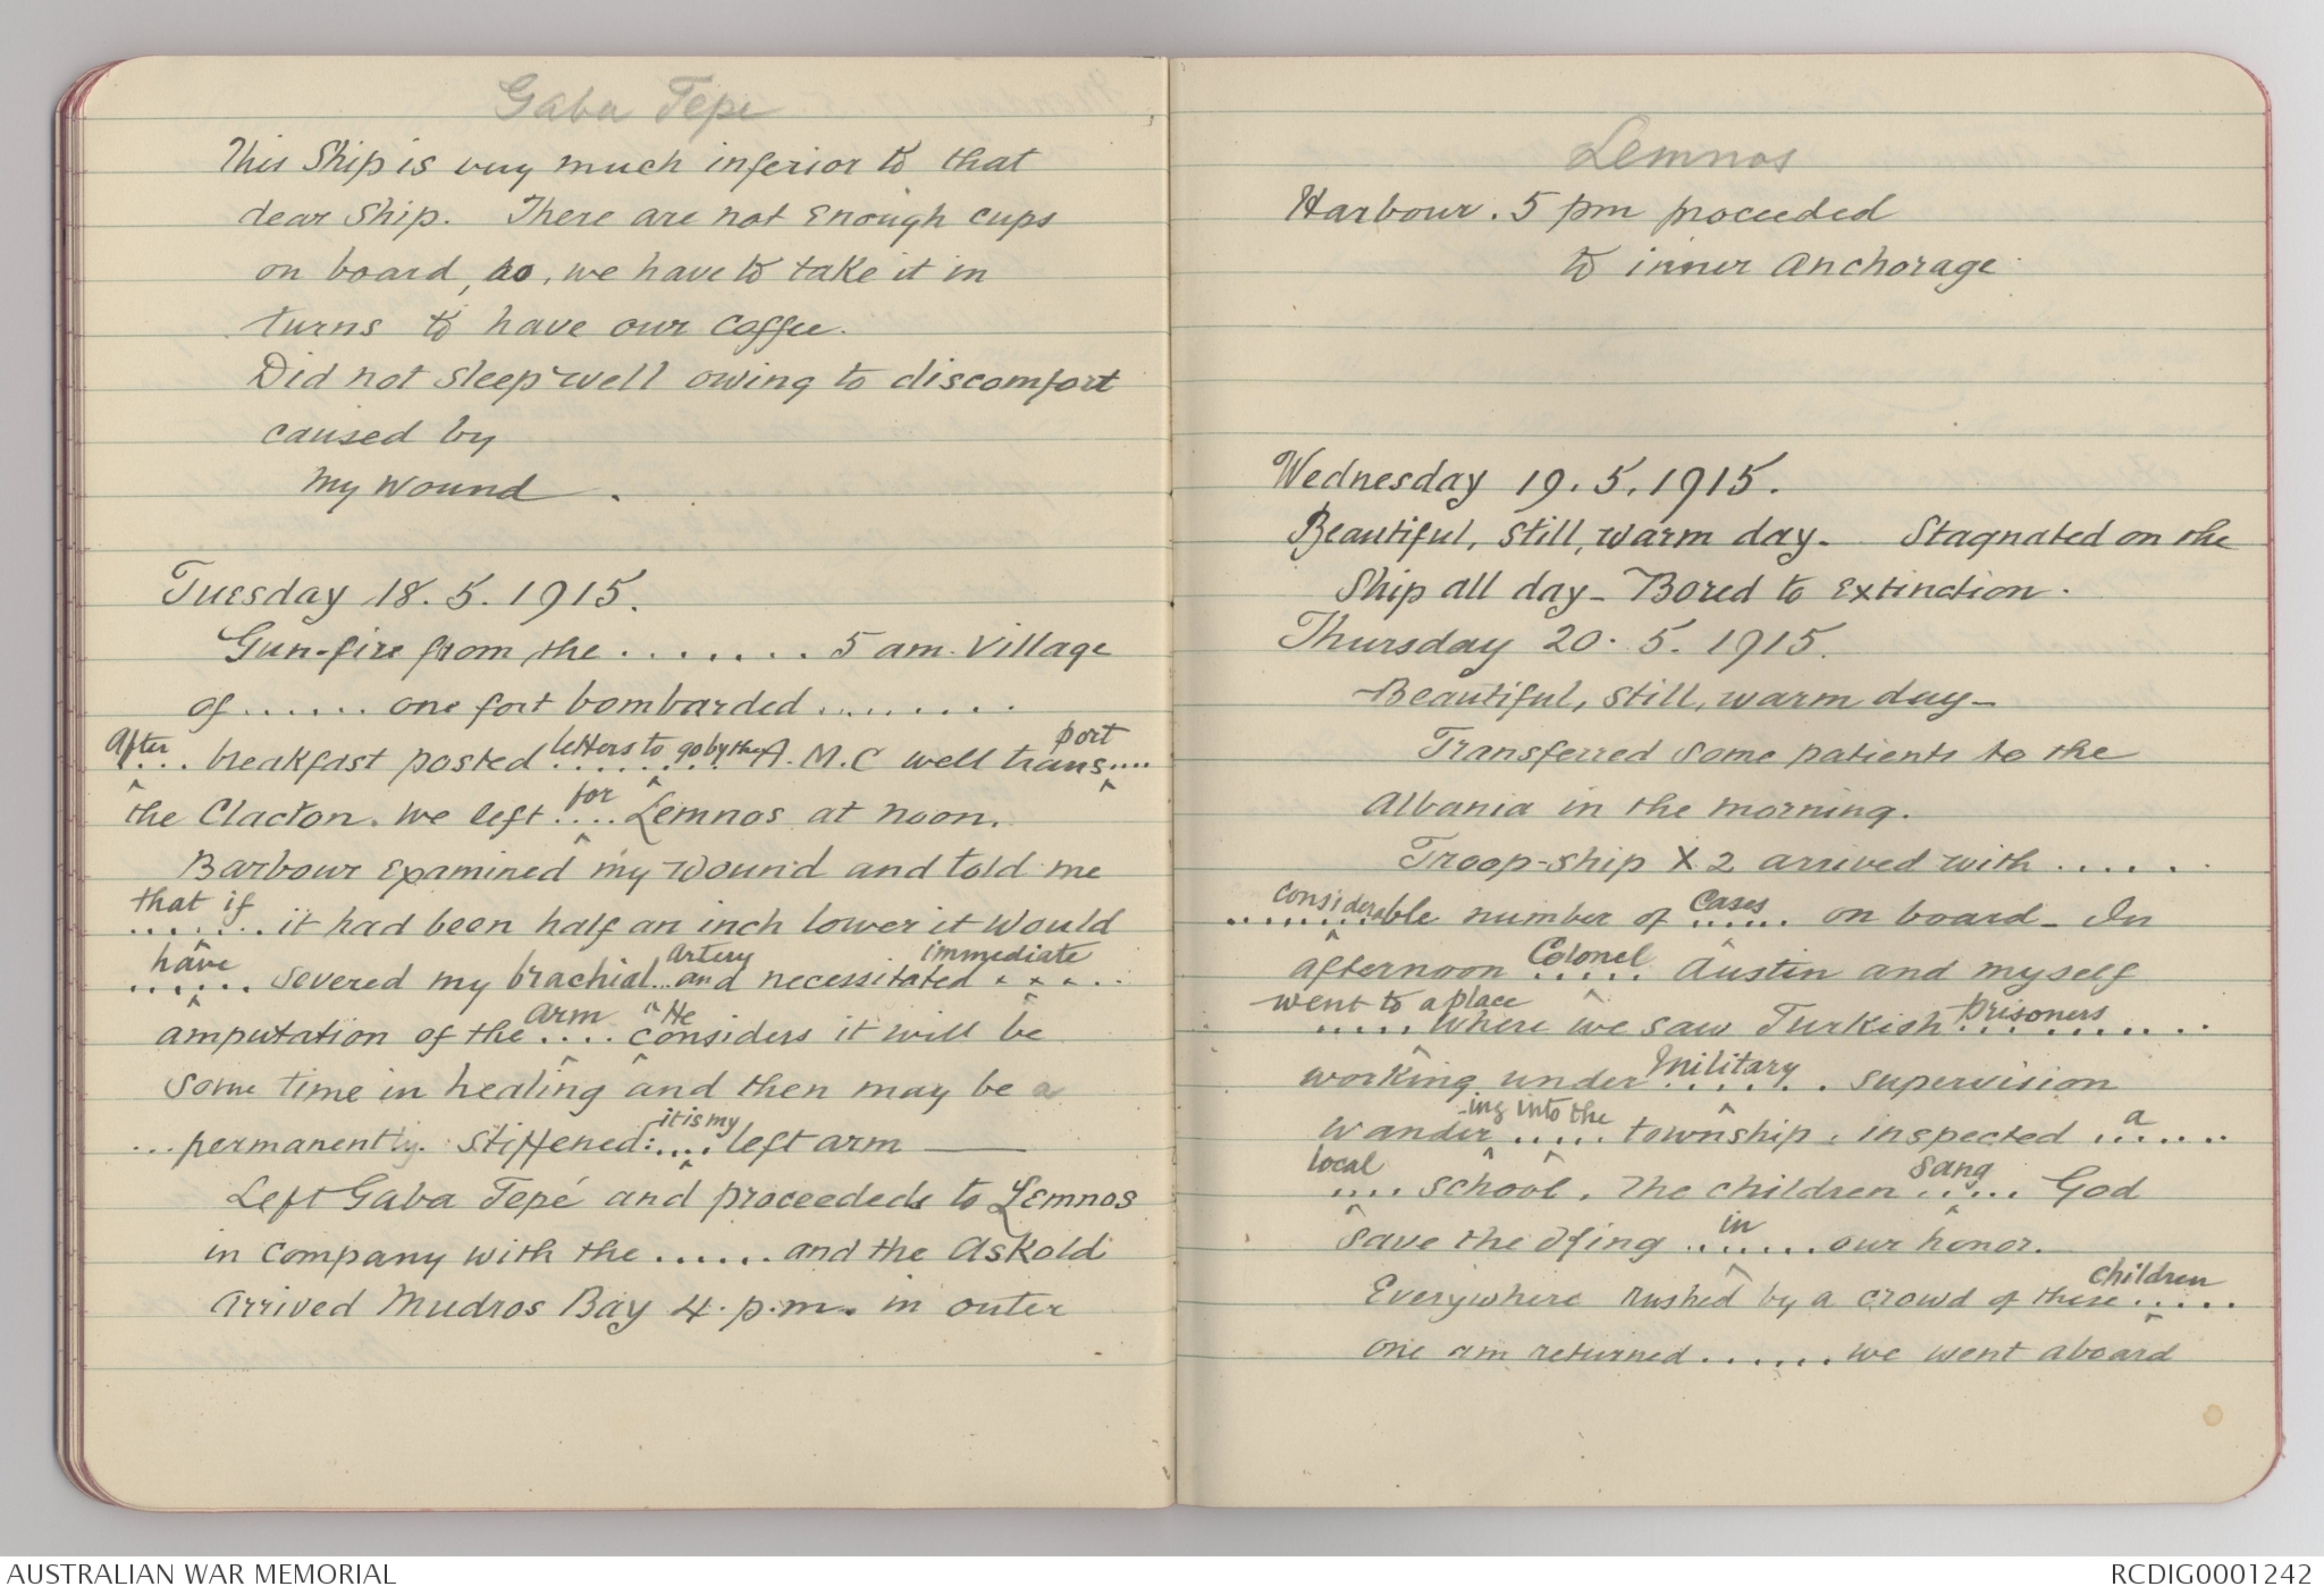 Gaba Tepe
This Ship is very much inferior to that
dear Ship. There are not enough cups
on board, so, we have to take it in
turns to have our coffee.
Did not sleep well owing to discomfort
caused by
my wound.
Tuesday 18.5.1915.
Gun-fire from the ........ 5 am. Village
of ...... one fort bombarded .........
After breakfast posted letters to go by the A.M.C well transport
the Clacton. We left for Lemnos at noon.
Barbour examined my wound and told me
that if it had been half an inch lower it would
have severed my brachial artery and necessitated immediate
amputation of the arm He considers it will be
some time in healing and then may be a
...permanently. Stiffened: it is my left arm ——
Left Gaba Tepé and proceeded to Lemnos
in company with the ...... and the Askold
Arrived Mudros Bay 4. p.m. in outer
Lemnos
Harbour. 5 pm proceeded
to inner anchorage.
Wednesday 19.5.1915.
Beautiful, still, warm day. Stagnated on the
Ship all day - Bored to extinction.
Thursday 20.5.1915.
Beautiful, still, warm day -
Transferred some patients to the
Albania in the morning.
Troop-ship X2 arrived with ......
considerable number of cases on board - In
afternoon Colonel Austin and myself
went to a place where we saw Turkish prisoners
working under military supervision
Wandering into the township. inspected a
local school. The children sang God
Save the King in our honor.
Everywhere rushed by a crowd of these children
one am returned ....... we went aboard
AUSTRALIAN WAR MEMORIAL
RCDIG0001242